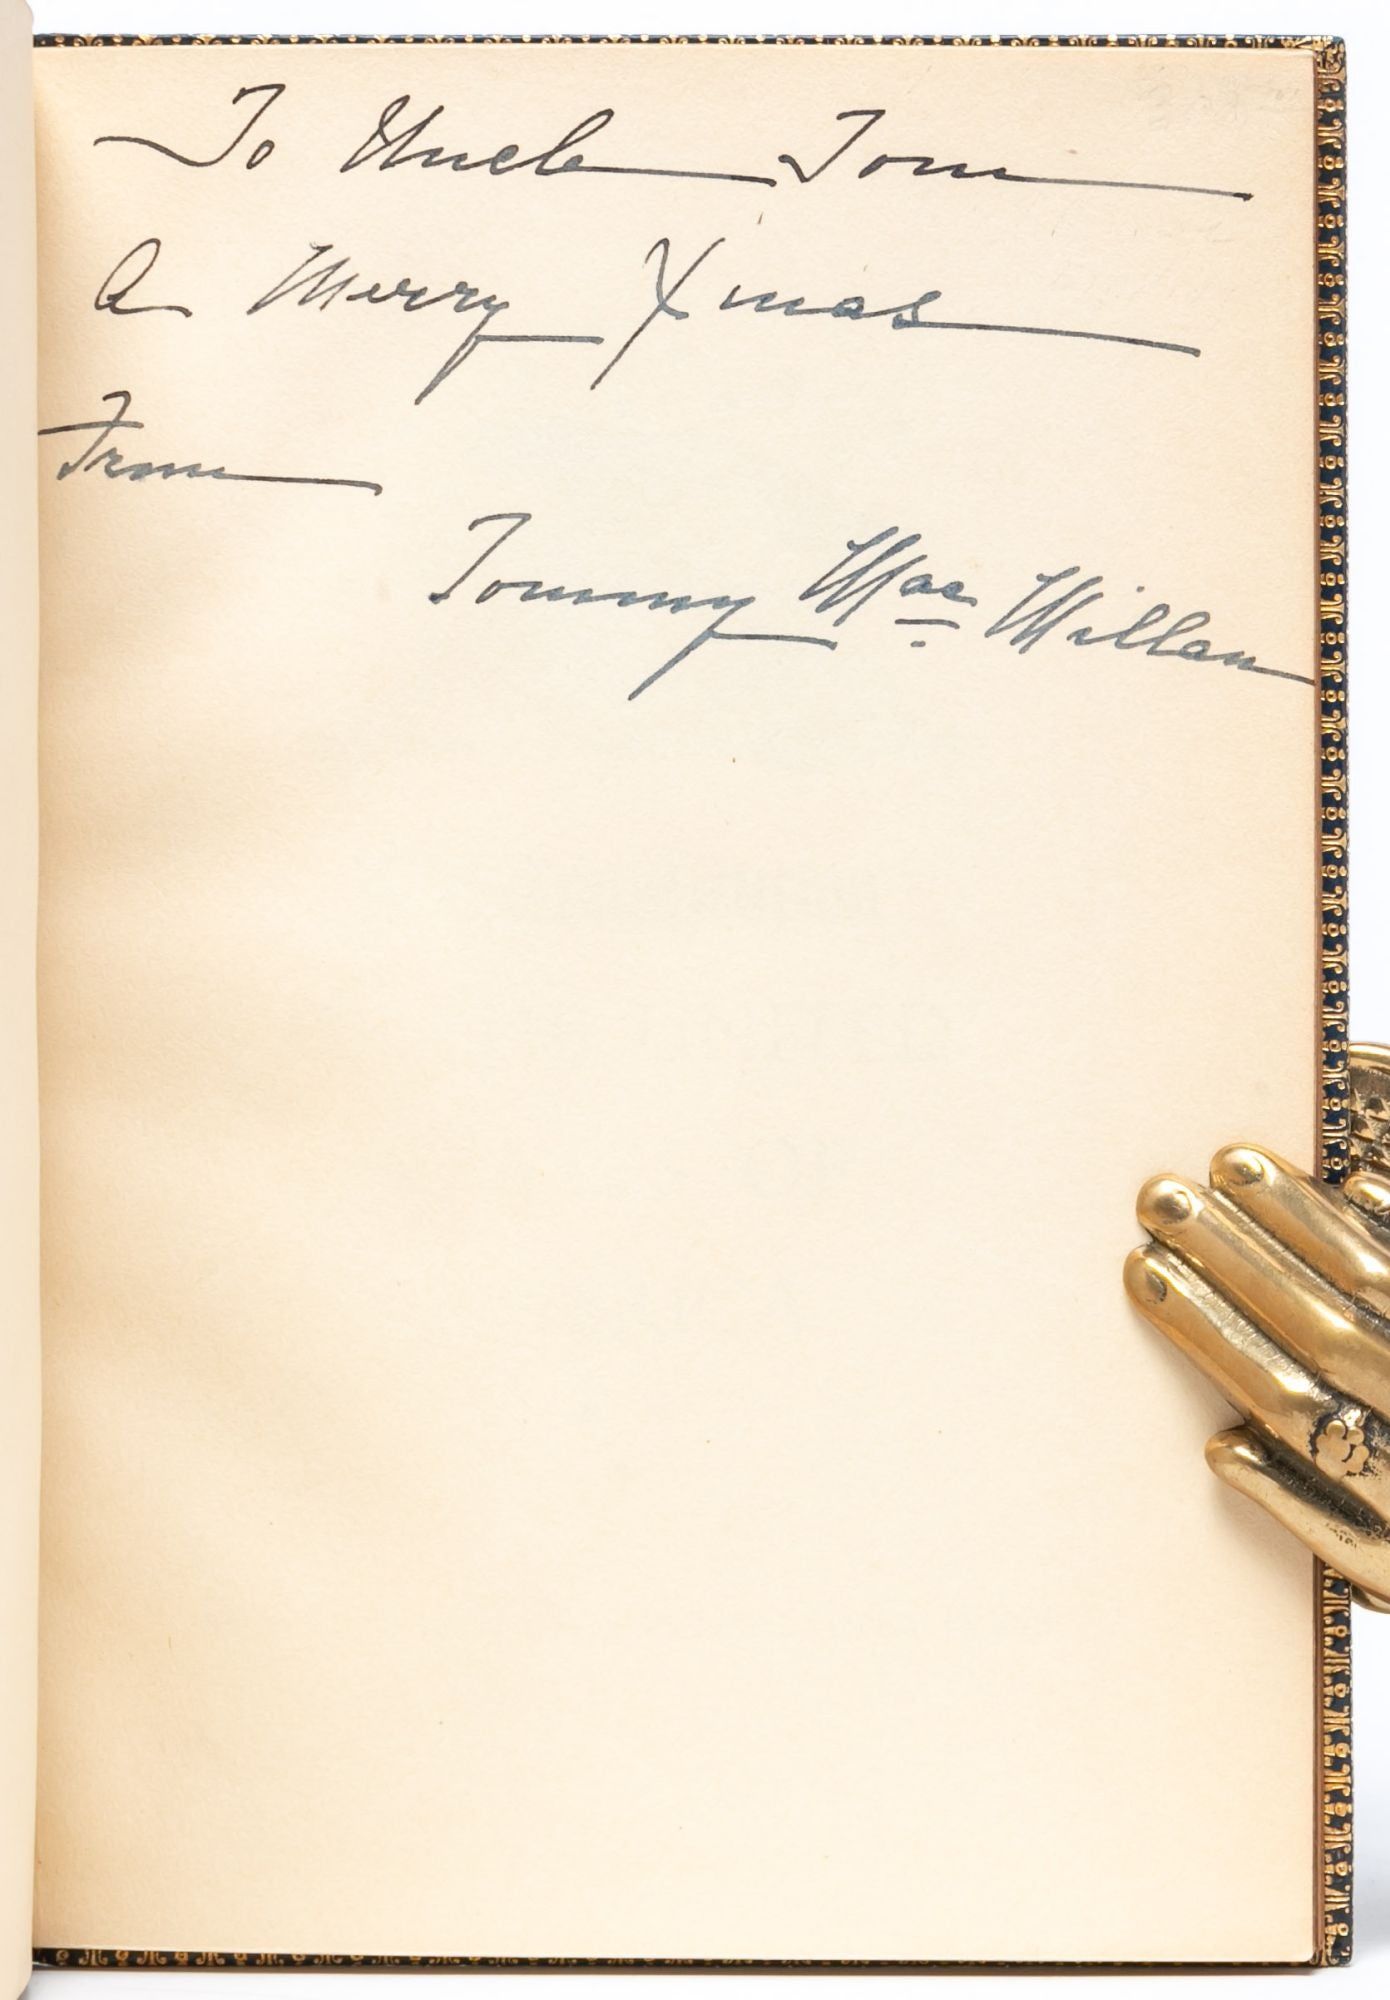 To Uncle Tom
A Merry Xmas
From
Tommy Mac Millan